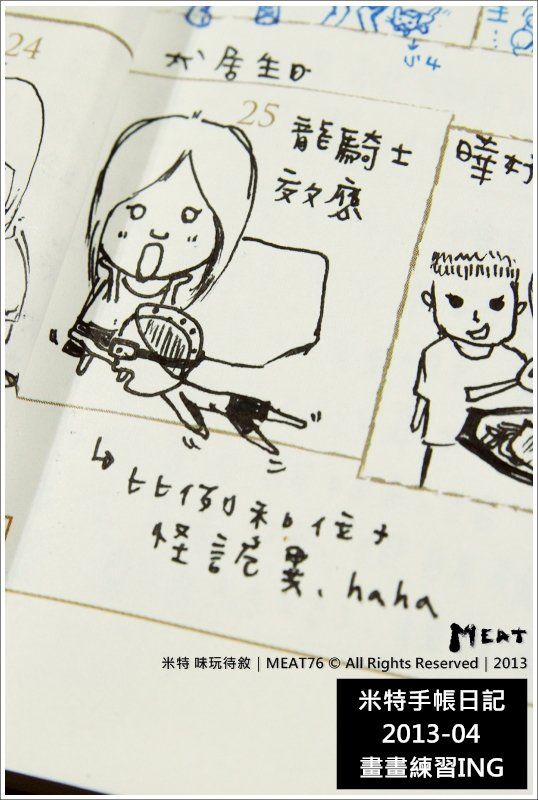 24
居生日
25
龍騎士
比例和位十
怪詭異、haha
MEAT
米特 味玩待敘 | MEAT76 © All Rights Reserved | 2013
米特手帳日記
2013-04
畫畫練習ING